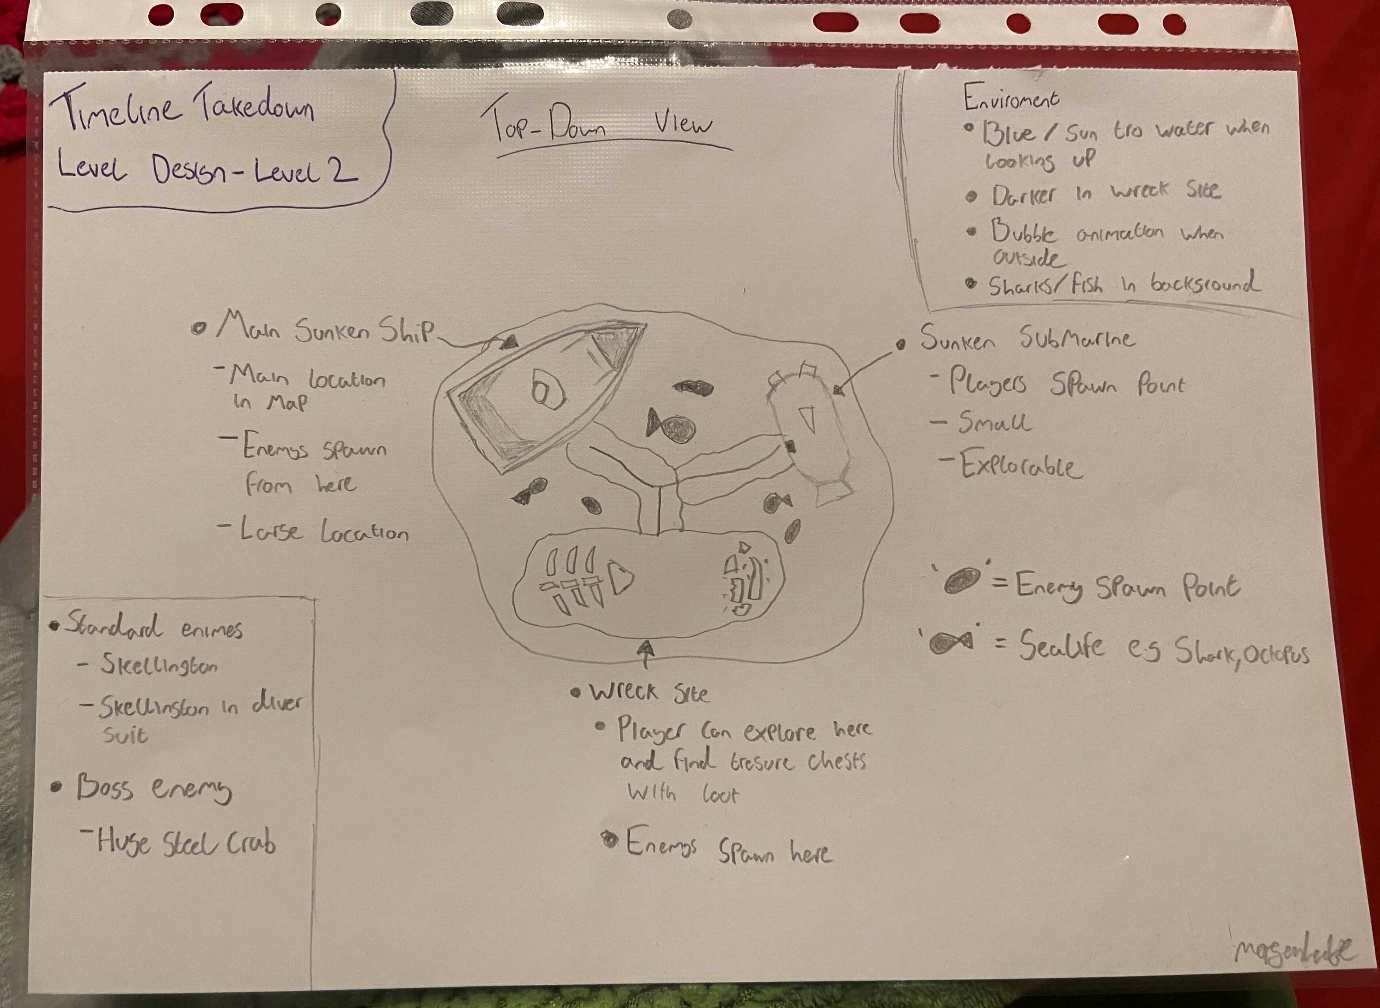 Timeline Takedown
Level Design - Level 2
Top-Down View
Enviroment
• Blue / Sun tro water when
looking up
• Darker in wreck site
• Bubble animation when
outside
• Sharks/fish in background
• Main Sunken Ship
- Main location
in Map
- Enemys spawn
from here
- Large location
• Sunken Submarine
- Players Spawn Point
- Small
- Explorable
' ' = Enemy Spawn Point
' ' = Sealife eg Shark, octopus
• Standard enimes
- Skellington
- Skellington in diver
suit
• Boss enemy
- Huge Steel Crab
• Wreck Site
• Player can explore here
and find tresure chests
with loot
• Enemys spawn here